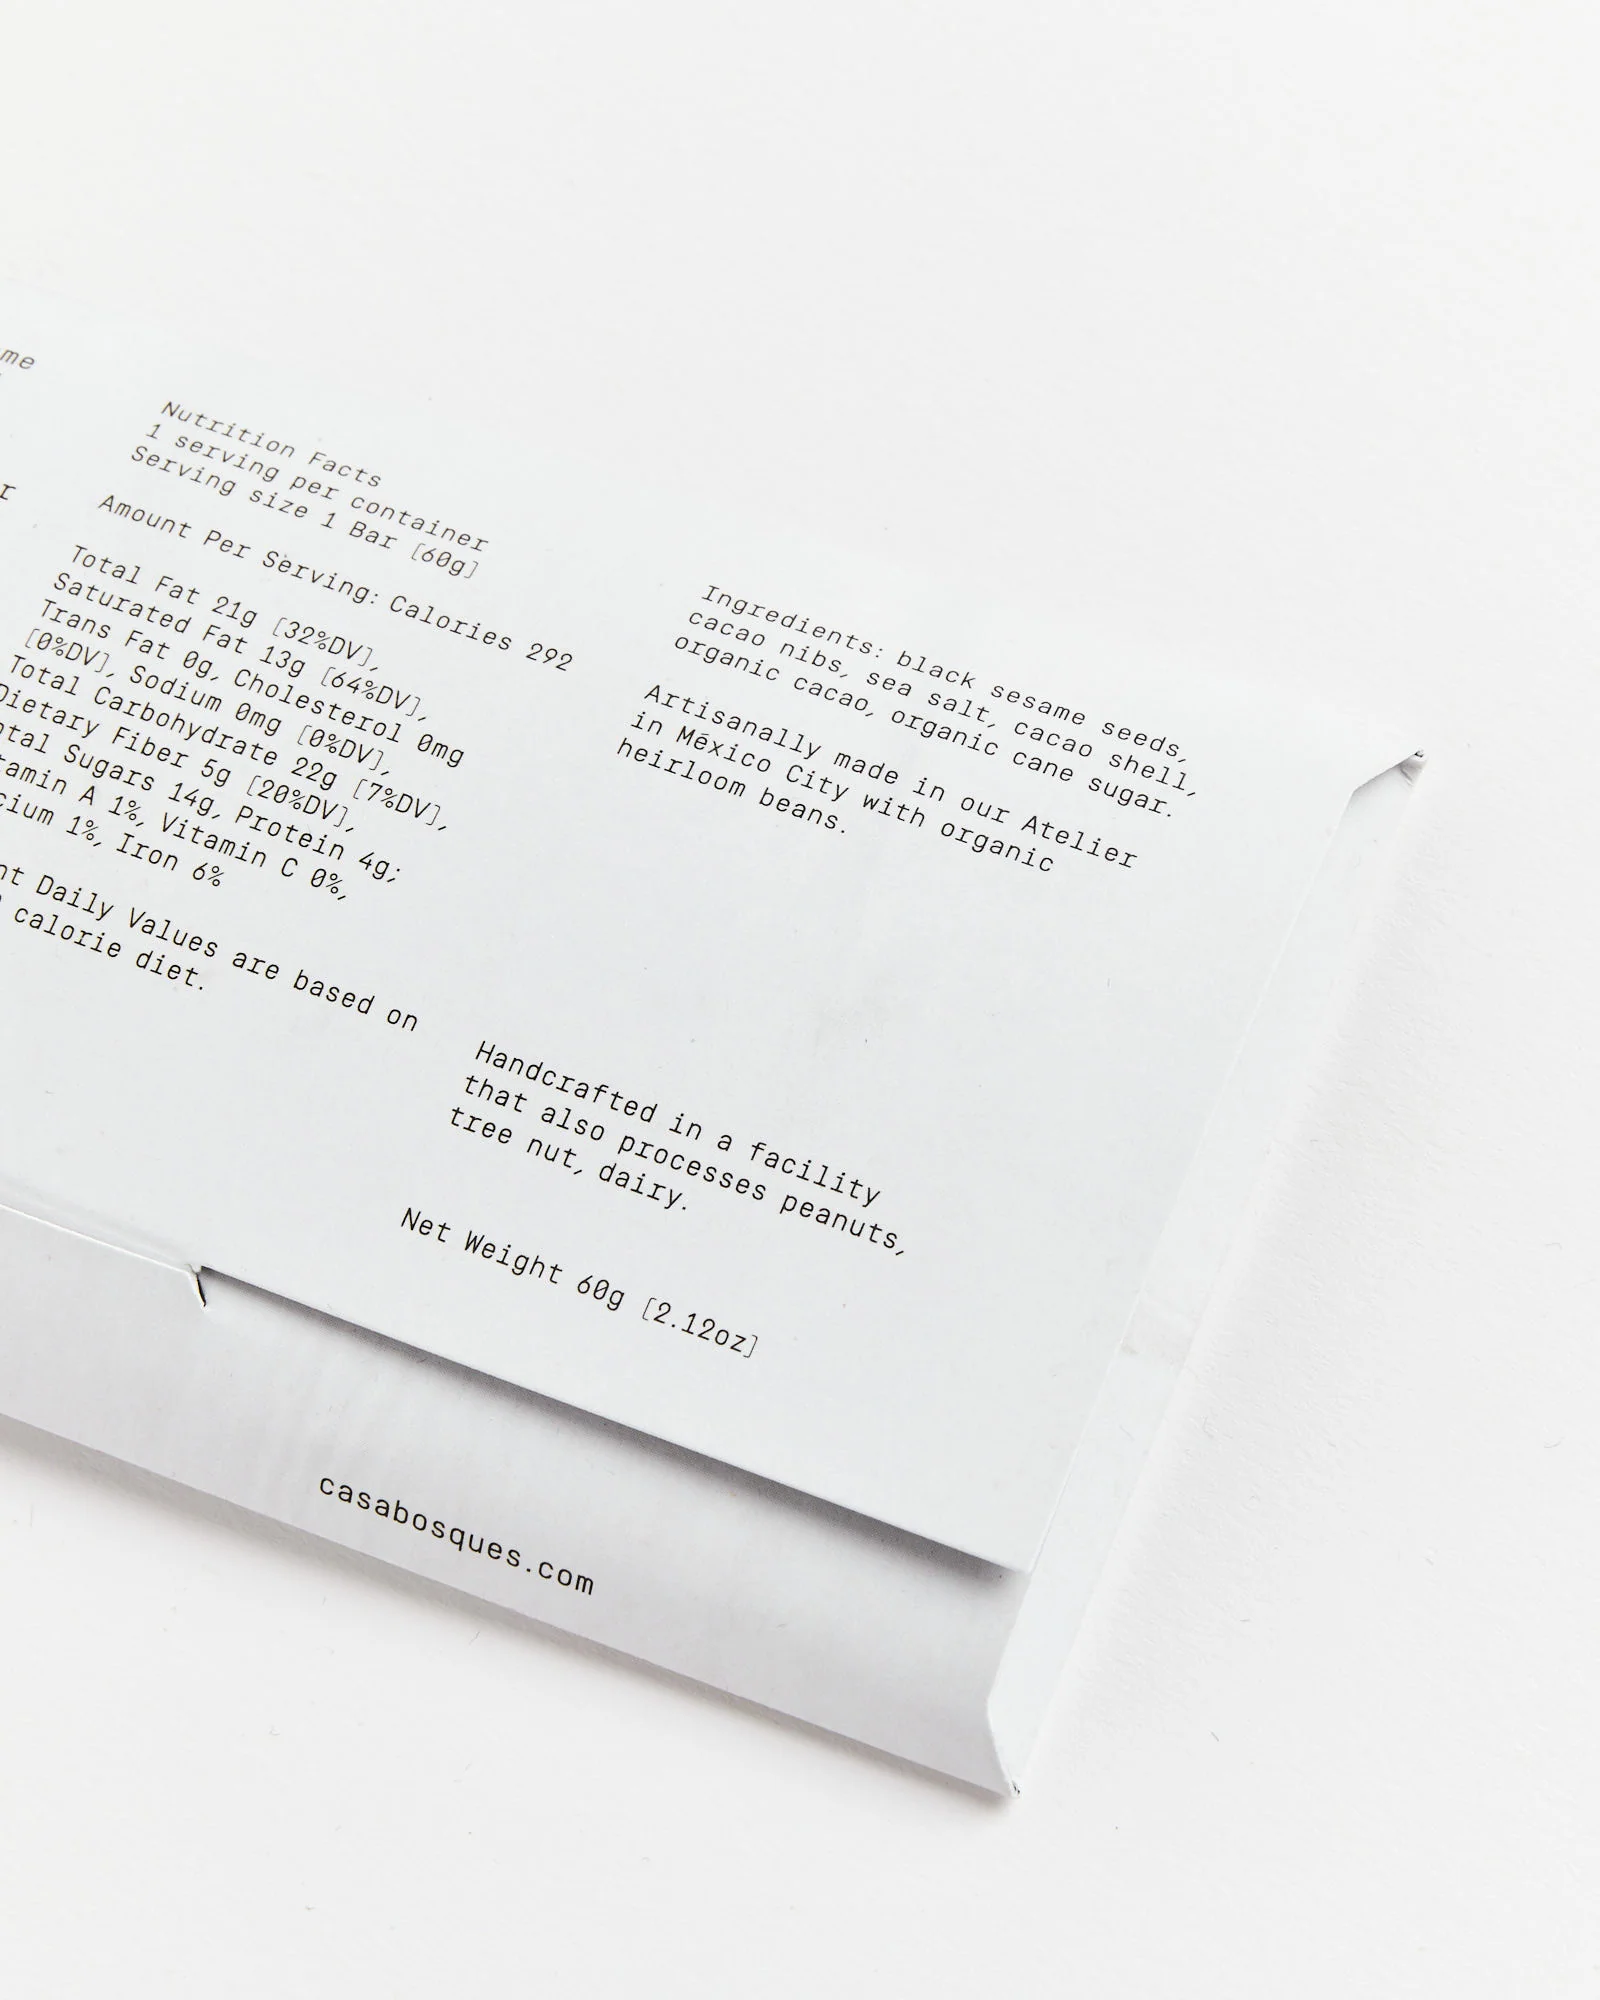 me
r
Nutrition Facts
1 serving per container
Serving size 1 Bar [60g]
Amount Per Serving: Calories 292
Total Fat 21g [32%DV],
Saturated Fat 13g [64%DV],
Trans Fat 0g, Cholesterol 0mg
[0%DV], Sodium 0mg [0%DV],
Total Carbohydrate 22g [7%DV],
Dietary Fiber 5g [20%DV],
tal Sugars 14g, Protein 4g;
tamin A 1%, Vitamin C 0%,
cium 1%, Iron 6%
nt Daily Values are based on
calorie diet.
Ingredients: black sesame seeds,
cacao nibs, sea salt, cacao shell,
organic cacao, organic cane sugar.
Artisanally made in our Atelier
in México City with organic
heirloom beans.
Handcrafted in a facility
that also processes peanuts,
tree nut, dairy.
Net Weight 60g [2.12oz]
casabosques.com